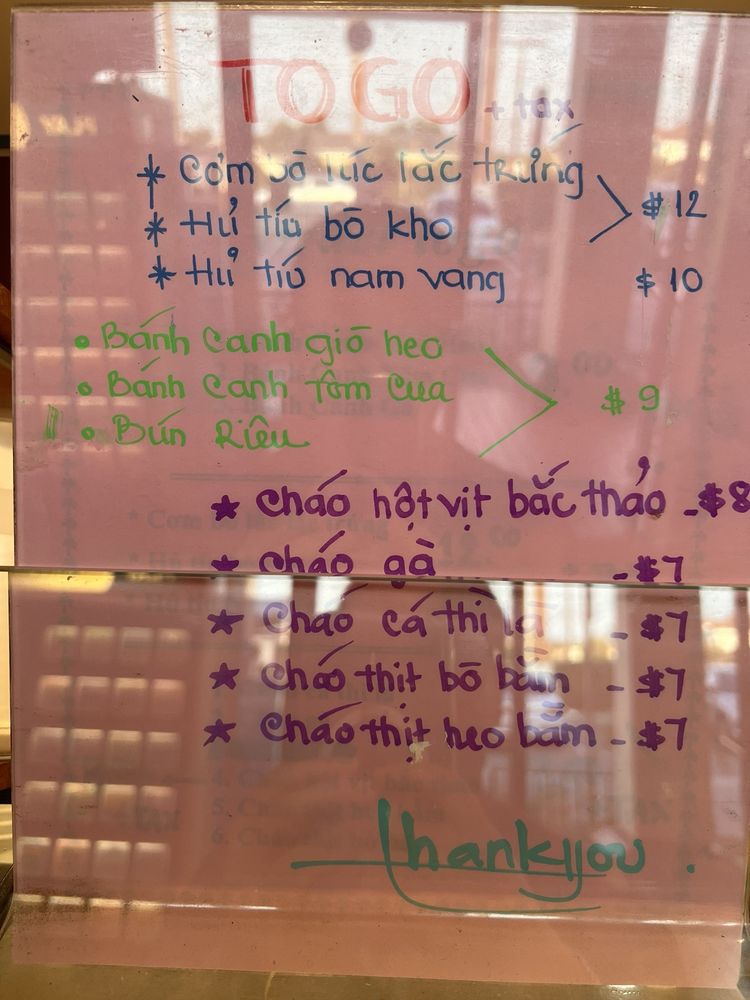 TO GO + tax
* Cơm bò lúc lắc trứng
* Hủ tíu bò kho > $12
* Hủ tíu nam vang $10
• Bánh Canh giò heo
• Bánh Canh Tôm Cua > $9
• Bún Riêu
★ Cháo hột vịt bắc thảo - $8
★ Cháo gà - $7
★ Cháo cá thì là - $7
★ Cháo thịt bò bằm - $7
★ Cháo thịt heo bằm - $7
Thank you .